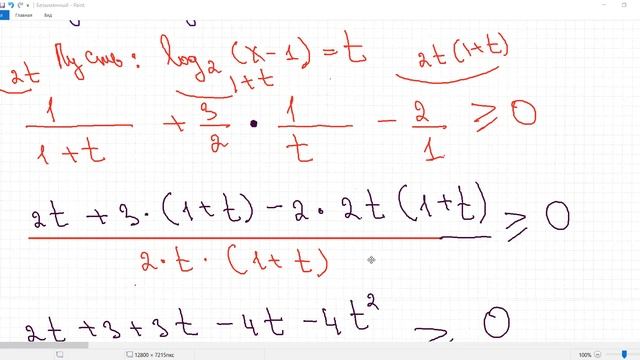 Безымянный - Paint
Файл Главная Вид
Пусть: log₂ (x-1) = t
2t 1+t 2t(1+t)
1/(1+t) + 3/2 • 1/t - 2/1 ≥ 0
(2t + 3·(1+t) - 2·2t(1+t))/(2·t·(1+t)) ≥ 0
2t + 3 + 3t - 4t - 4t² ≥ 0
12800 × 7215пкс
100%